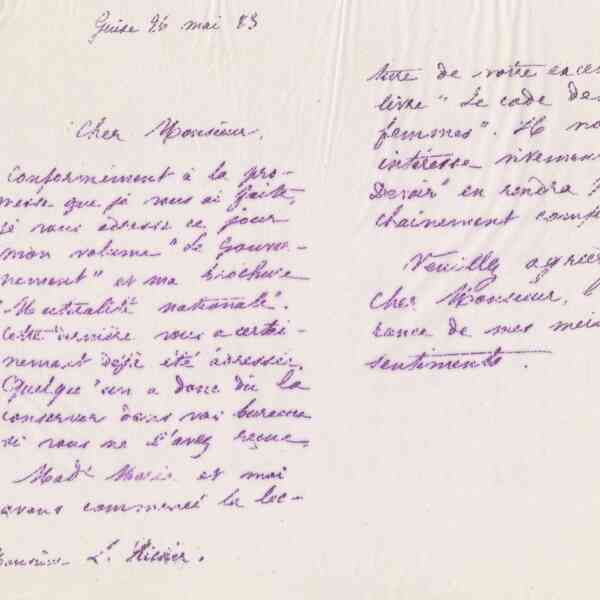 Guise 26 mai 83
Cher Monsieur,
Conformément à la pro-
messe que je vous ai faite,
je vous adresse ce jour
mon volume "Le Gouver-
nement" et ma brochure
"Mutualité nationale".
Cette dernière vous a certai-
nement déjà été adressée.
Quelqu'un a donc dû la
conserver dans vos bureaux
si vous ne l'avez reçue.
Made Marie et moi
avons commencé la lec-
Monsieur L. Richer.
ture de votre excel
livre "Le code des
femmes". Il no
intéresse vivement
Devoir" en rendra
chainement comp
Veuillez agréer
Cher Monsieur, l'
rance de mes meil
sentiments.